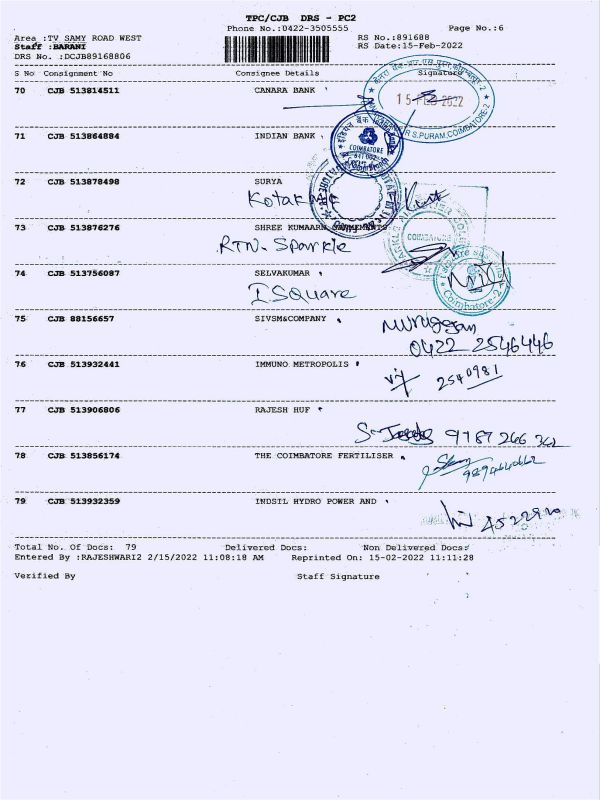 TPC/CJB DRS - PC2
Phone No.:0422-3505555 Page No.:6
Area :TV SAMY ROAD WEST RS No.:891688
Staff :BARANI RS Date:15-Feb-2022
DRS No. :DCJB89168806
S No Consignment No Consignee Details Signature
70 CJB 513814511 CANARA BANK
15 FEB 2022
R S.PURAM, COIMBATORE-2
71 CJB 513864884 INDIAN BANK
COIMBATORE
641 002
72 CJB 513878498 SURYA
Kotak
73 CJB 513876276 SHREE KUMAARN GARMENTS
RTN. Sparkle
COIMBATORE
74 CJB 513756087 SELVAKUMAR
I Square
Coimbatore-2
75 CJB 88156657 SIVSM&COMPANY
Murugesan
0422 2546446
76 CJB 513932441 IMMUNO METROPOLIS
2540981
77 CJB 513906806 RAJESH HUF
9787266362
78 CJB 513856174 THE COIMBATORE FERTILISER
79 CJB 513932359 INDSIL HYDRO POWER AND
Total No. Of Docs: 79 Delivered Docs: Non Delivered Docs:
Entered By :RAJESHWARI2 2/15/2022 11:08:18 AM Reprinted On: 15-02-2022 11:11:28
Verified By Staff Signature